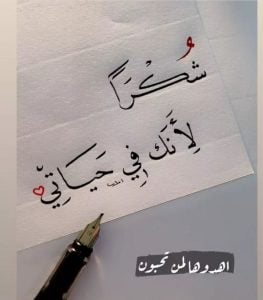 شُكْرَاً
لِأَنَّكَ فِي حَيَاتِيّ
اهدوها لمن تحبون